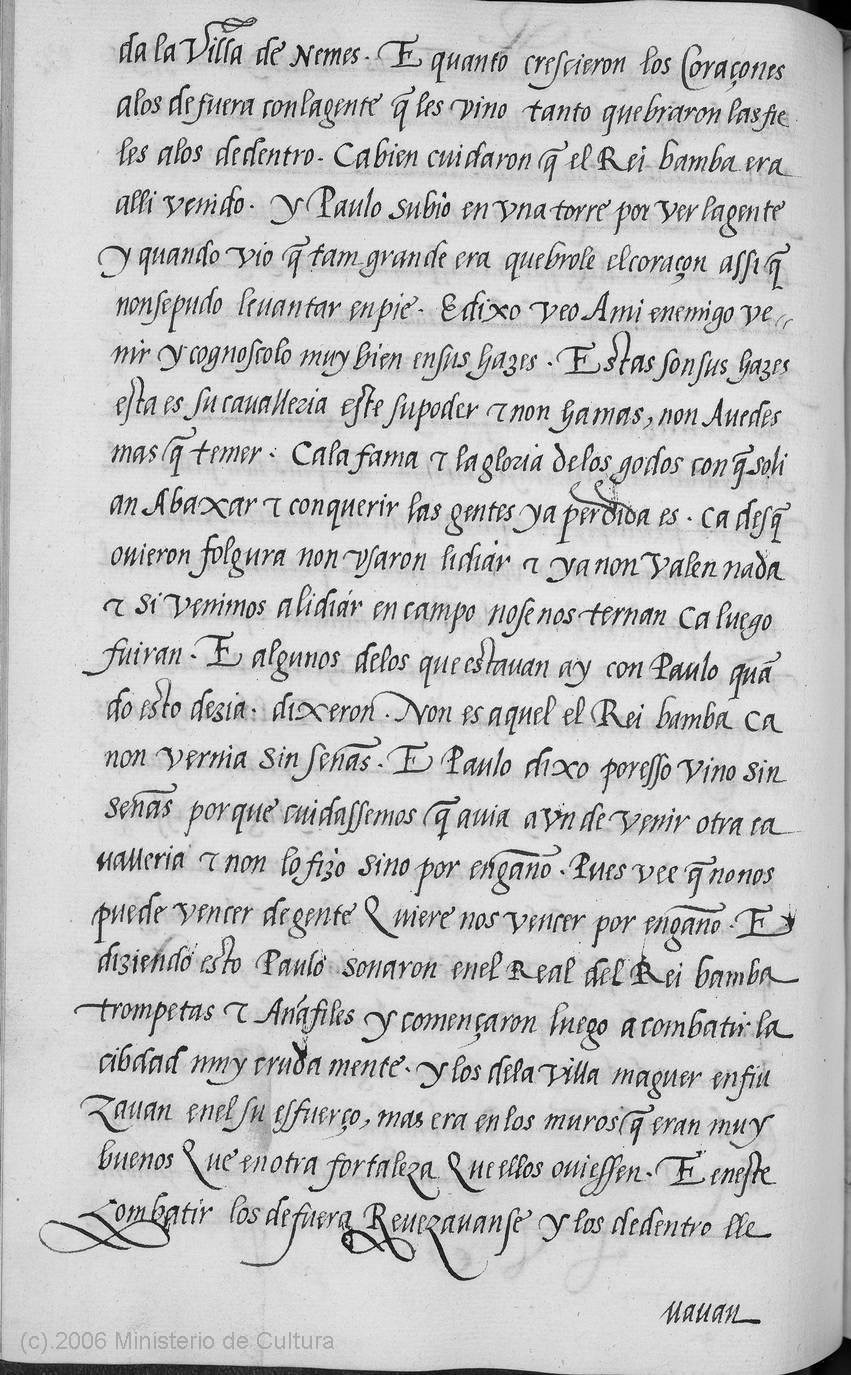 da la Villa de Nemes. E quanto crescieron los Coraçones
alos de fuera con lagente q̃ les vino tanto quebraron las fie
les alos de dentro. Ca bien cuidaron q̃ el Rei bamba era
alli venido. y Paulo subio en vna torre por ver lagente
y quando vio q̃ tam grande era quebrole el coraçon assi q̃
non se pudo levantar en pie. E dixo veo A mi enemigo ve
nir y cognoscolo muy bien en sus hazes. Estas son sus hazes
esta es su cavalleria este su poder τ non ha mas, non Avedes
mas q̃ temer. Ca la fama τ la gloria de los godos con q̃ soli
an Abaxar τ conquerir las gentes ya perdida es. ca desq̃
ovieron folgura non vsaron lidiar τ ya non Valen nada
τ si venimos a lidiar en campo no se nos ternan Ca luego
fuiran. E algunos de los que estavan ay con Paulo quã
do esto dezia. dixeron. Non es aquel el Rei bamba Ca
non vernia sin señas. E Paulo dixo por esso vino sin
señas por que cuidassemos q̃ avia avn de venir otra ca
valleria τ non lo fizo sino por engaño. Pues vee q̃ no nos
puede vencer de gente Quiere nos vencer por engaño. E
diziendo esto Paulo sonaron en el Real del Rei bamba
trompetas τ Añafiles y començaron luego a combatir la
cibdad muy cruda mente. y los de la villa maguer enfiu
zavan en el su esfuerço, mas era en los muros q̃ eran muy
buenos Que en otra fortaleza Que ellos oviessen. E en este
Combatir los de fuera Revezavanse y los de dentro lle
vavan
(c).2006 Ministerio de Cultura